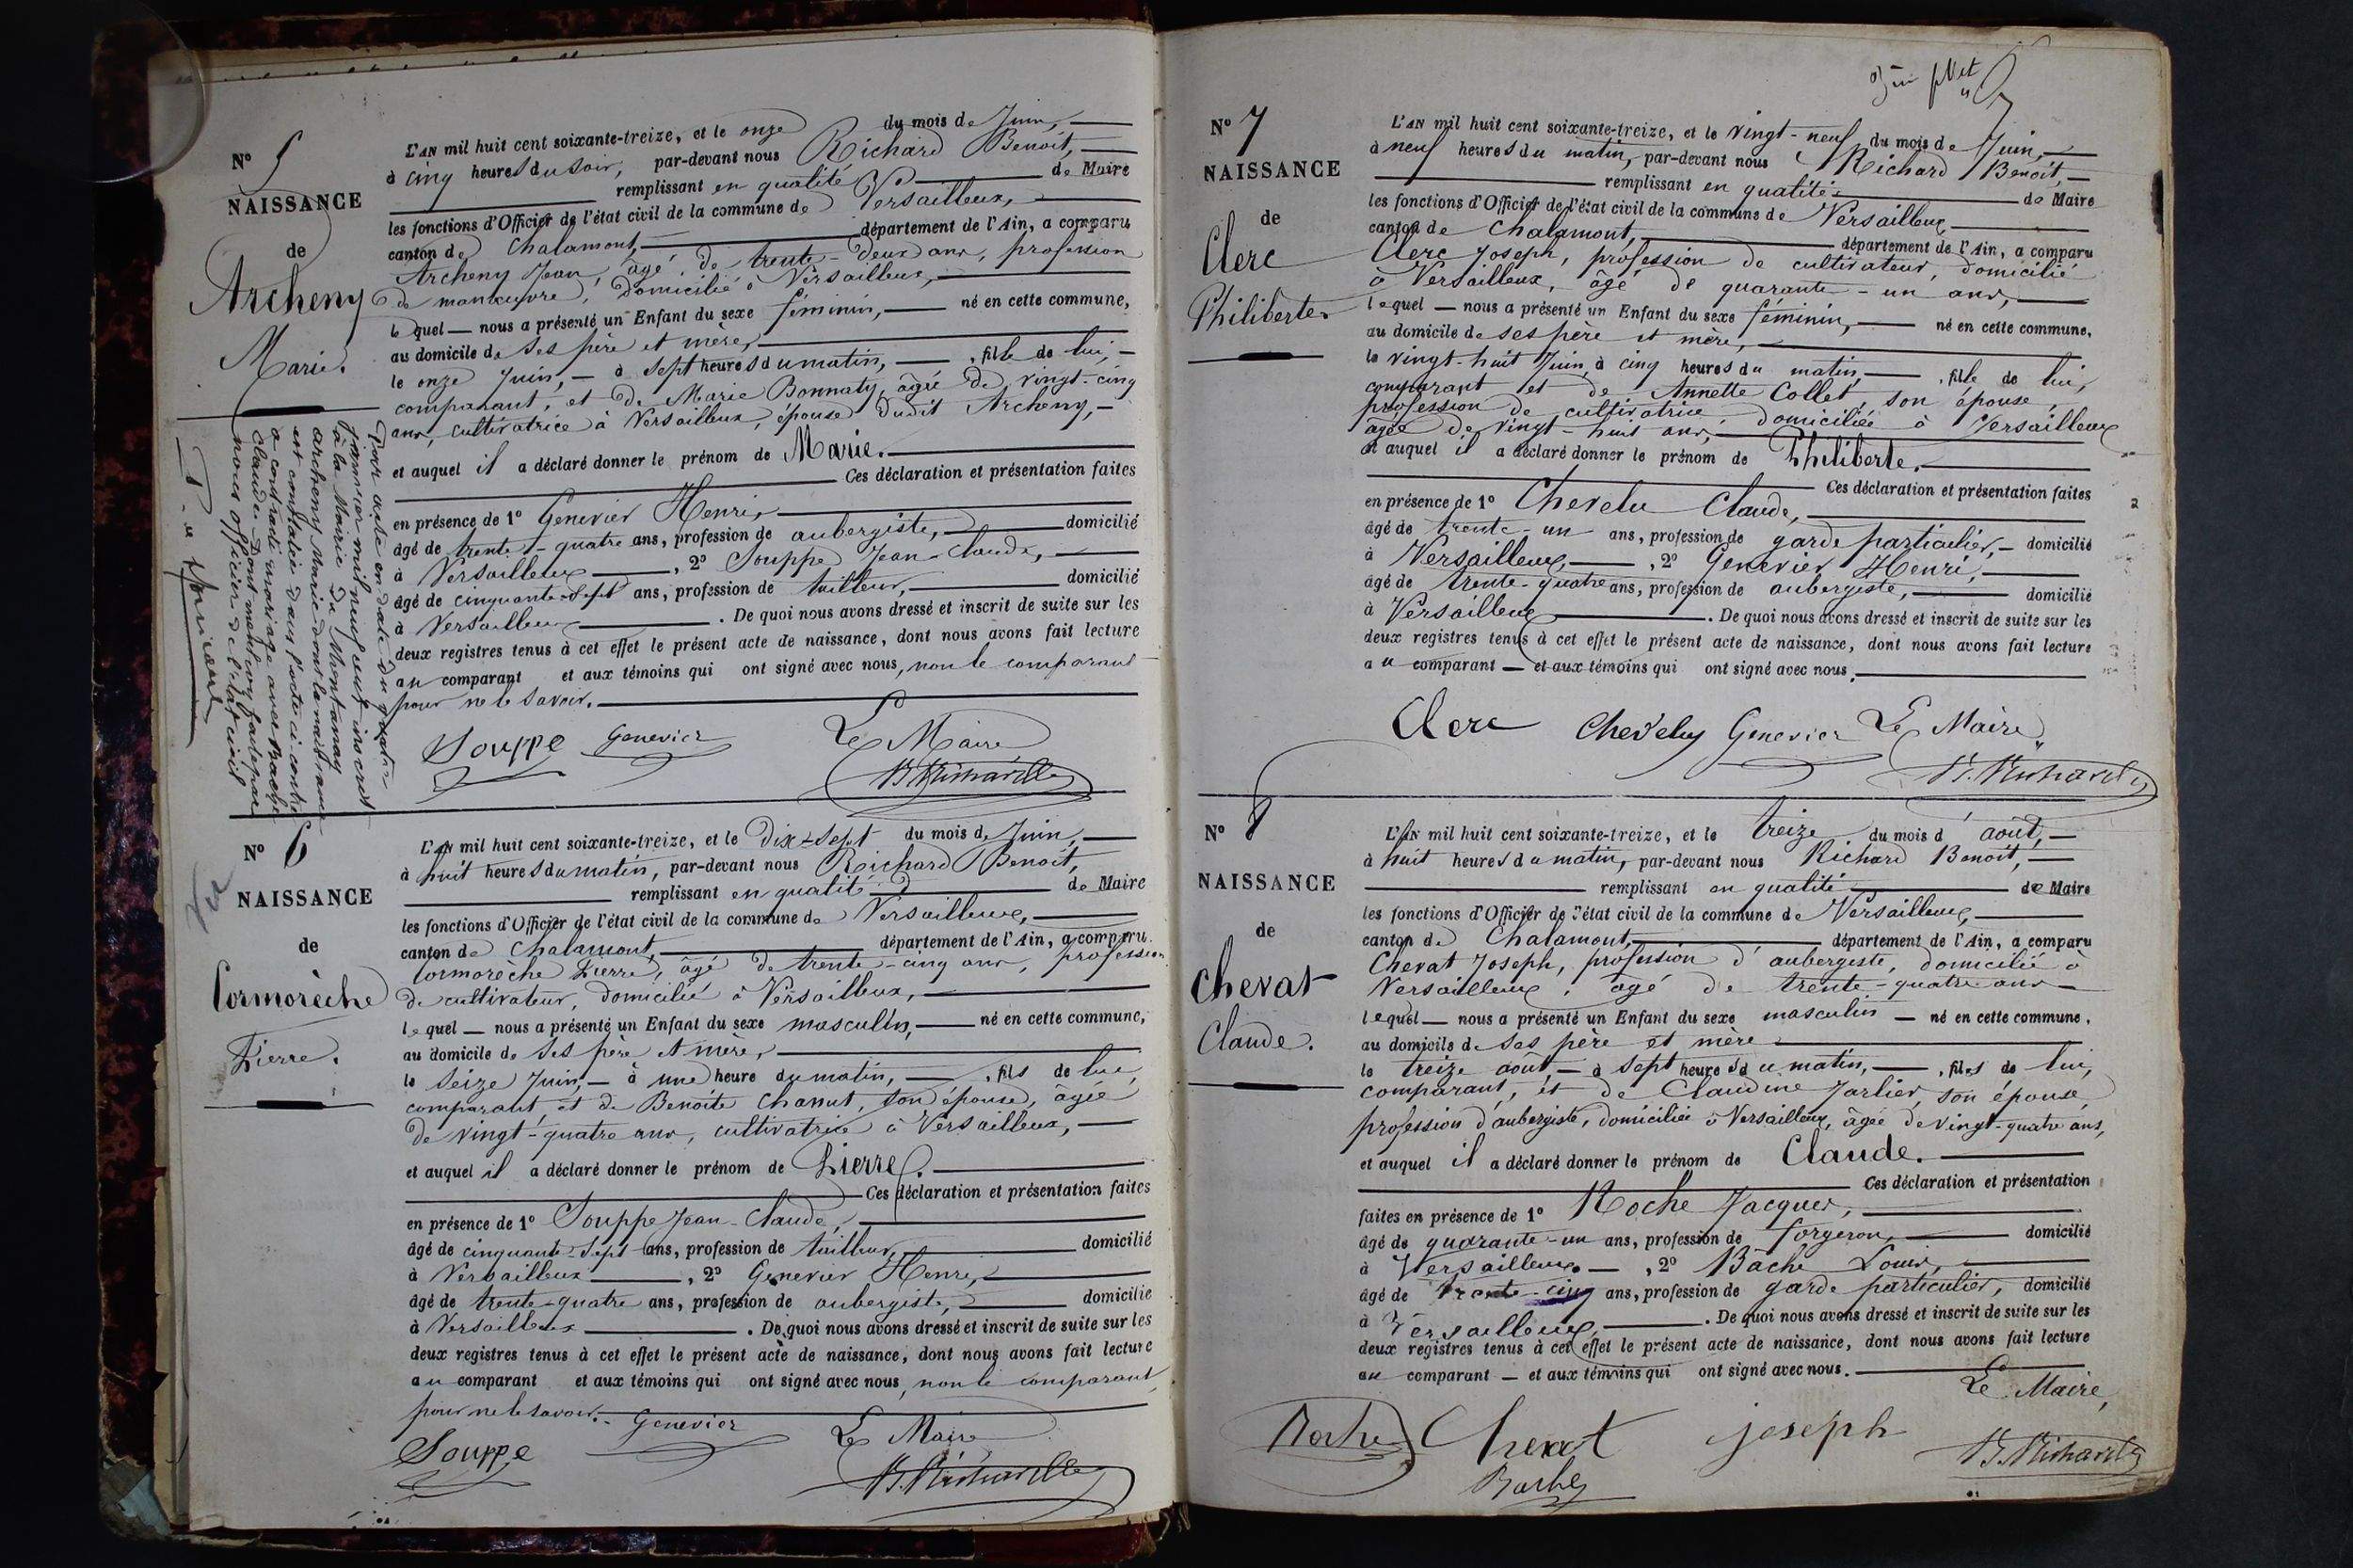 N° 5
NAISSANCE
de
Archeny
Marie.
L'AN mil huit cent soixante-treize, et le onze du mois de Juin,
à cinq heures du soir, par-devant nous Richard Benoît,
remplissant en qualité de Maire
les fonctions d'Officier de l'état civil de la commune de Versailleux,
canton de Chalamont, département de l'Ain, a comparu
Archeny Jean, âgé de trente-deux ans, profession
de manœuvre, domicilié à Versailleux,
lequel nous a présenté un Enfant du sexe féminin, né en cette commune,
au domicile de ses père et mère,
le onze Juin, à sept heures du matin, fille de lui,
comparant, et de Marie Bonnaty, âgée de vingt-cinq
ans, cultivatrice à Versailleux, épouse dudit Archeny,
et auquel il a déclaré donner le prénom de Marie.
Ces déclaration et présentation faites
en présence de 1° Genevier Henri,
âgé de trente-quatre ans, profession de aubergiste, domicilié
à Versailleux, 2° Souppe Jean-Claude,
âgé de cinquante-sept ans, profession de tailleur, domicilié
à Versailleux. De quoi nous avons dressé et inscrit de suite sur les
deux registres tenus à cet effet le présent acte de naissance, dont nous avons fait lecture
au comparant et aux témoins qui ont signé avec nous, non le comparant
pour ne le savoir.
Souppe Genevier Le Maire
B. Richard
Par acte en date du quatre
janvier mil neuf cent inscrit
à la Mairie de Montanay
archeny Marie dont la naissance
est constatée dans l'acte ci-contre
a contracté mariage avec
Claude. Dont mention faite par
nous officier de l'état civil
N° 6
NAISSANCE
de
Cormorèche
Pierre.
Vu
L'AN mil huit cent soixante-treize, et le dix-sept du mois de Juin,
à huit heures du matin, par-devant nous Richard Benoît,
remplissant en qualité de Maire
les fonctions d'Officier de l'état civil de la commune de Versailleux,
canton de Chalamont, département de l'Ain, a comparu
Cormorèche Pierre, âgé de trente-cinq ans, profession
de cultivateur, domicilié à Versailleux,
lequel nous a présenté un Enfant du sexe masculin, né en cette commune,
au domicile de ses père et mère,
le seize Juin, à une heure du matin, fils de lui,
comparant, et de Benoîte Chanut, son épouse, âgée
de vingt-quatre ans, cultivatrice à Versailleux,
et auquel il a déclaré donner le prénom de Pierre.
Ces déclaration et présentation faites
en présence de 1° Souppe Jean-Claude,
âgé de cinquante-sept ans, profession de tailleur, domicilié
à Versailleux, 2° Genevier Henri,
âgé de trente-quatre ans, profession de aubergiste, domicilié
à Versailleux. De quoi nous avons dressé et inscrit de suite sur les
deux registres tenus à cet effet le présent acte de naissance, dont nous avons fait lecture
au comparant et aux témoins qui ont signé avec nous, non le comparant,
pour ne le savoir.
Souppe Genevier Le Maire
B. Richard
N° 7
NAISSANCE
de
Clerc
Philiberte.
L'AN mil huit cent soixante-treize, et le vingt-neuf du mois de Juin,
à neuf heures du matin, par-devant nous Richard Benoît,
remplissant en qualité de Maire
les fonctions d'Officier de l'état civil de la commune de Versailleux,
canton de Chalamont, département de l'Ain, a comparu
Clerc Joseph, profession de cultivateur, domicilié
à Versailleux, âgé de quarante-un ans,
lequel nous a présenté un Enfant du sexe féminin, né en cette commune,
au domicile de ses père et mère,
le vingt-huit Juin à cinq heures du matin, fille de lui,
comparant et de Annette Collet, son épouse,
profession de cultivatrice domiciliée à Versailleux
âgée de vingt-huit ans,
et auquel il a déclaré donner le prénom de Philiberte.
Ces déclaration et présentation faites
en présence de 1° Chevelu Claude,
âgé de trente-un ans, profession de garde particulier, domicilié
à Versailleux, 2° Genevier Henri,
âgé de trente-quatre ans, profession de aubergiste, domicilié
à Versailleux. De quoi nous avons dressé et inscrit de suite sur les
deux registres tenus à cet effet le présent acte de naissance, dont nous avons fait lecture
au comparant et aux témoins qui ont signé avec nous.
Clerc Chevelu Genevier Le Maire
B. Richard
N° 8
NAISSANCE
de
Chevat
Claude.
L'AN mil huit cent soixante-treize, et le treize du mois d'août,
à huit heures du matin, par-devant nous Richard Benoît,
remplissant en qualité de Maire
les fonctions d'Officier de l'état civil de la commune de Versailleux,
canton de Chalamont, département de l'Ain, a comparu
Chevat Joseph, profession d'aubergiste, domicilié à
Versailleux, âgé de trente-quatre ans
lequel nous a présenté un Enfant du sexe masculin né en cette commune,
au domicile de ses père et mère
le treize août, à sept heures du matin, fils de lui,
comparant, et de Claudine Jarlier, son épouse,
profession d'aubergiste, domiciliée à Versailleux, âgée de vingt-quatre ans,
et auquel il a déclaré donner le prénom de Claude.
Ces déclaration et présentation
faites en présence de 1° Roche Jacques,
âgé de quarante-un ans, profession de forgeron, domicilié
à Versailleux, 2° Bâche Louis,
âgé de trente-cinq ans, profession de garde particulier, domicilié
à Versailleux. De quoi nous avons dressé et inscrit de suite sur les
deux registres tenus à cet effet le présent acte de naissance, dont nous avons fait lecture
au comparant et aux témoins qui ont signé avec nous.
Le Maire,
Roche Chevat joseph B. Richard